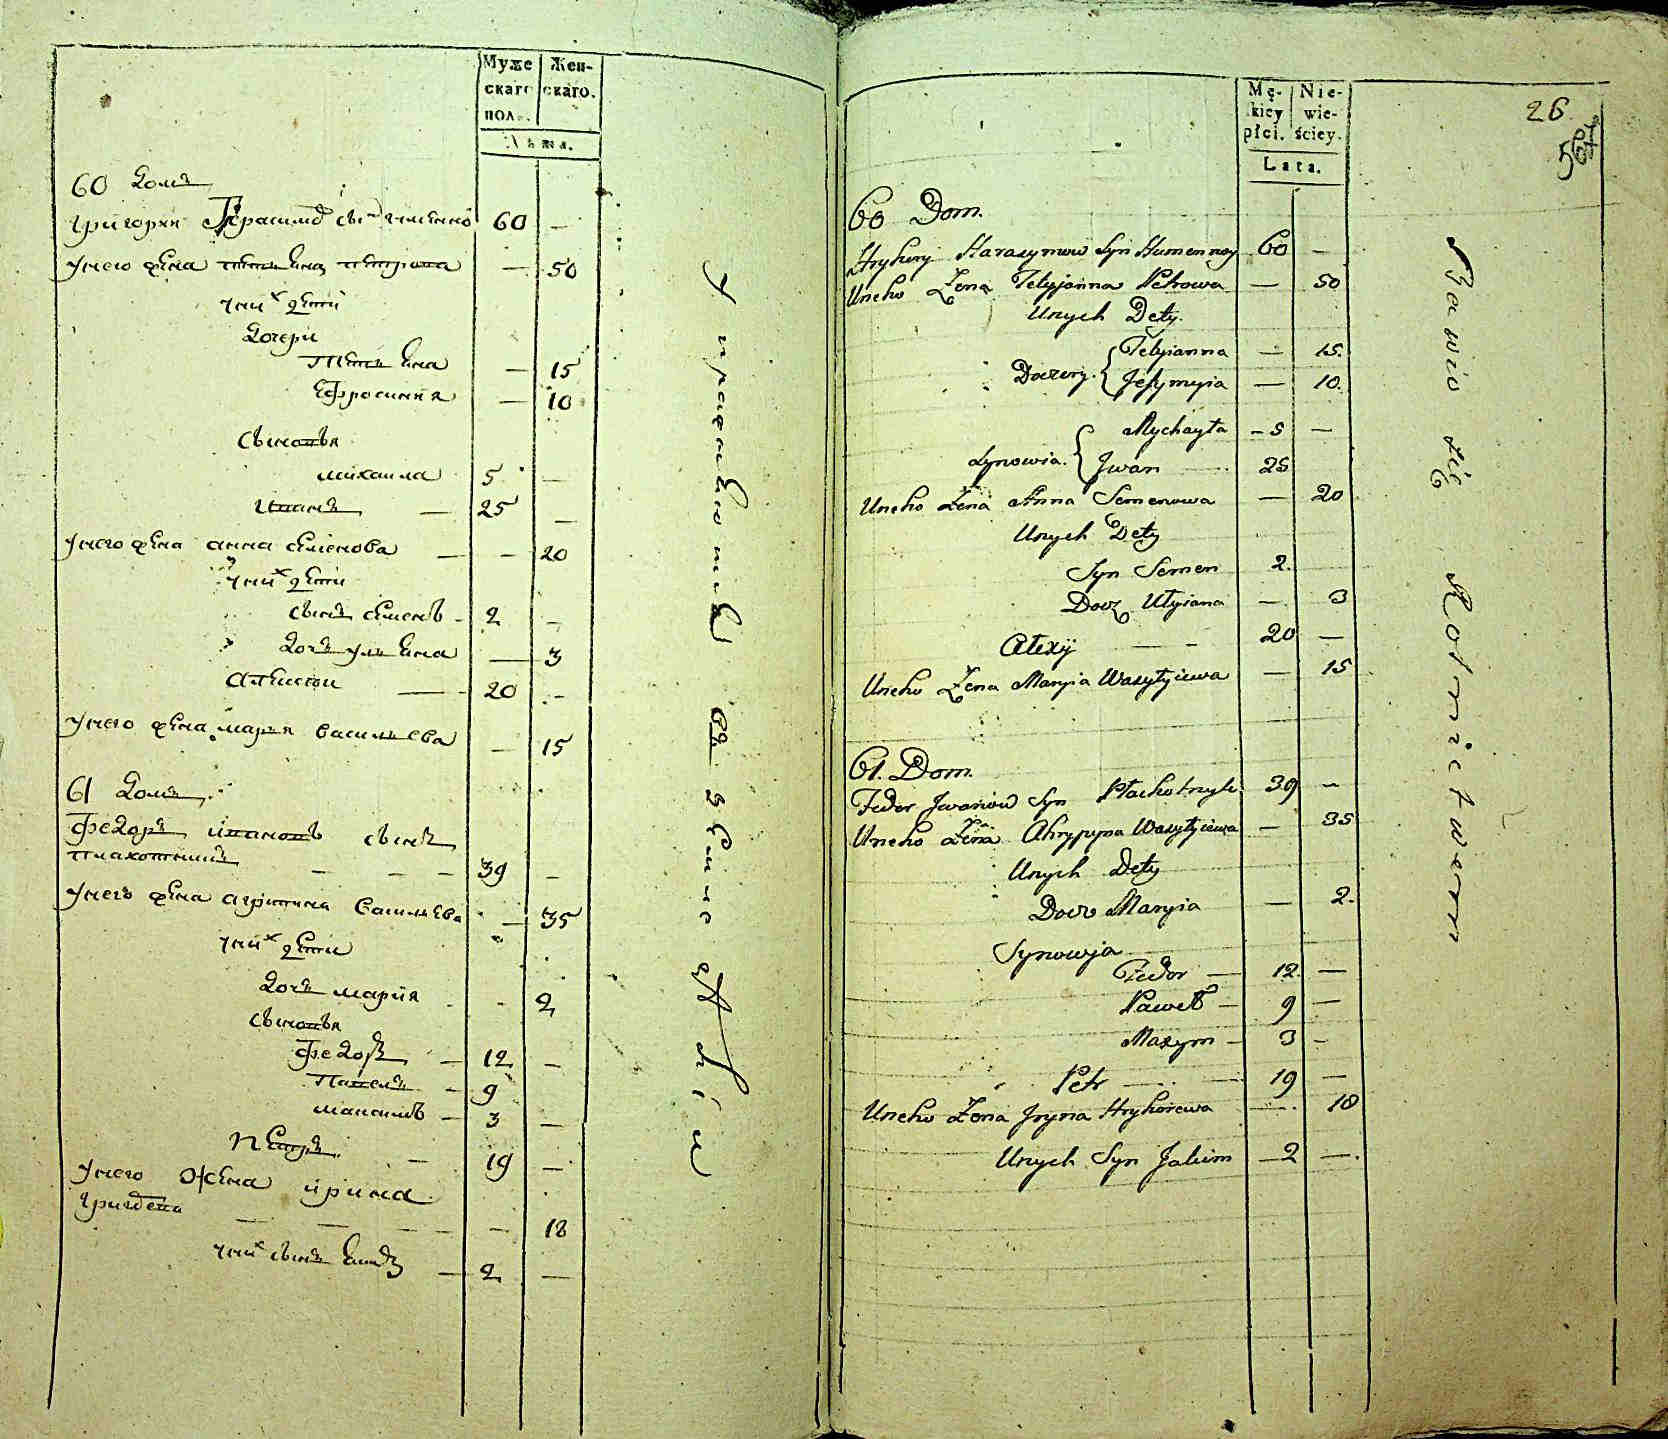 Муже
скаго
пол.
Жен-
скаго.
Лѣта.
60 домъ
Григорий Герасимов сынъ гуменной 60 —
У него жена тетьяна петрова — 50
у них дети
дочери
Тетьяна — 15
Ефросиния — 10
сыновья
михаила 5 —
иванъ — 25 —
У него жена анна семенова — — 20
у них дети
сынъ семенъ - 2 —
дочь ульяна — 3
алексей — 20 —
У него жена мария васильева — 15
61 домъ
Федоръ ивановъ сынъ
плахотникъ — — — 39 —
У него жена агрипина васильева — 35
у них дети
дочь мария - 2
сыновья
Федоръ — 12 —
Павелъ - 9
максимъ — 3 —
Петръ — 19 —
У него жена ирина
— — — — — 18
у них сынъ — 2 —
упражняютъ въ
Mę-
kiey
płci.
Nie-
wie-
ściey.
Lata.
26
60 Dom.
Hryhory Harasymow Syn Humennoy 60 —
Uneho Żena Tetyjanna Petrowa — 50
Unych Dety.
Doczery. { Tetyianna — 15.
Jefymyia — 10.
Synowia. { Mychayła - 5 —
Jwan — 25
Uneho Żena Anna Semenowa — 20
Unych Dety
Syn Semen 2.
Docz Ulyiana — 3
Alexÿ — - 20 —
Uneho Żena Maryia Wasylyiewa — 15
61. Dom.
Fedor Jwanow Syn Płachotnyk 39 —
Uneho Żena Ahrypyna Wasylyiewa — 35
Unych Dety
Docz Maryia — 2.
Synowja
Fedor — 12. —
Paweł — 9 —
Maxym - 3 -
Petr — — 19 —
Uneho Żona Jryna Hryhorewa — 18
Unych Syn Jakim — 2 —.
Bawio się Rolnictwem